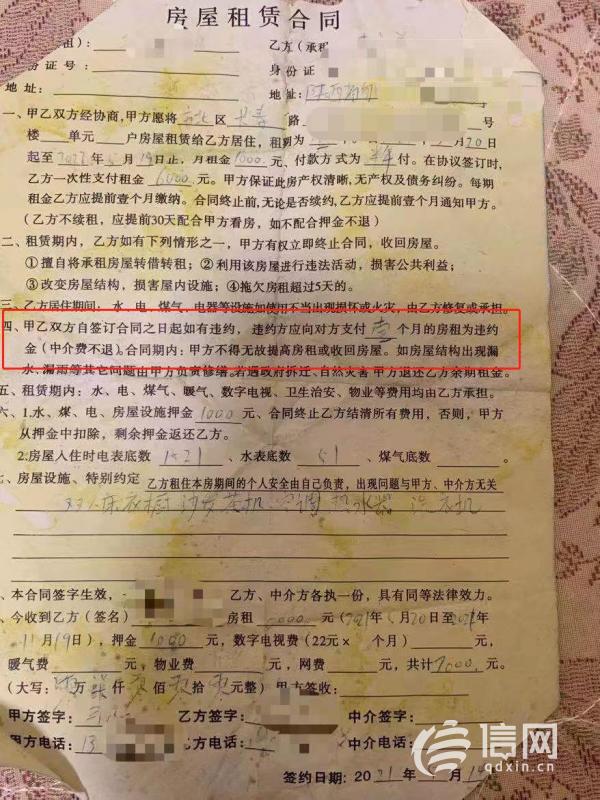 房屋租赁合同
租): 乙方(承租
份证号: 身份证
地址: 地址:
一、甲乙双方经协商,甲方愿将 市北 区 路 号
楼 单元 户房屋租赁给乙方居住,租期为 月20日
起至2022年 月19日止,月租金1000元、付款方式为半年付。在协议签订时,
乙方一次性支付租金6000元。甲方保证此房产权清晰,无产权及债务纠纷。每期
租金乙方应提前壹个月缴纳。合同终止前,无论是否续约,乙方应提前壹个月通知甲方。
(乙方不续租,应提前30天配合甲方看房,如不配合押金不退)
二、租赁期内,乙方如有下列情形之一,甲方有权立即终止合同,收回房屋。
①擅自将承租房屋转借转租;②利用该房屋进行违法活动,损害公共利益;
③改变房屋结构,损害屋内设施;④拖欠房租超过5天的。
三、乙方居住期间:水、电、煤气、电器等设施如使用不当出现损坏或火灾,由乙方修复或承担。
四、甲乙双方自签订合同之日起如有违约,违约方应向对方支付壹个月的房租为违约
金(中介费不退)。合同期内:甲方不得无故提高房租或收回房屋。如房屋结构出现漏
水、漏雨等其它问题由甲方负责修缮。若遇政府拆迁、自然灾害甲方退还乙方余期租金。
五、租赁期内:水、电、煤气、暖气、数字电视、卫生治安、物业等费用均由乙方承担。
六、1.水、煤、电、房屋设施押金1000元、合同终止乙方结清所有费用,否则,甲方
从押金中扣除,剩余押金返还乙方。
2.房屋入住时电表底数 1521 、水表底数 51 、煤气底数 。
七、房屋设施、特别约定 乙方租住本房期间的个人安全由自己负责,出现问题与甲方、中介方无关
双人床衣橱 沙发茶机 空调 热水器 洗衣机
、本合同签字生效, 乙方、中介方各执一份,具有同等法律效力。
、今收到乙方(签名) 房租 6000元(2021年 月20日至2021年
11月19日),押金1000元,数字电视费(22元× 个月) 元,
暖气费 元,物业费 元,网费 元,共计7000元,
(大写: 万柒仟零佰零拾零元整)甲方签收:
甲方签字: 乙方签字: 中介签字:
甲方电话:13 乙方电话: 中介电话:
签约日期:2021年 月19
信网
qdxin.cn